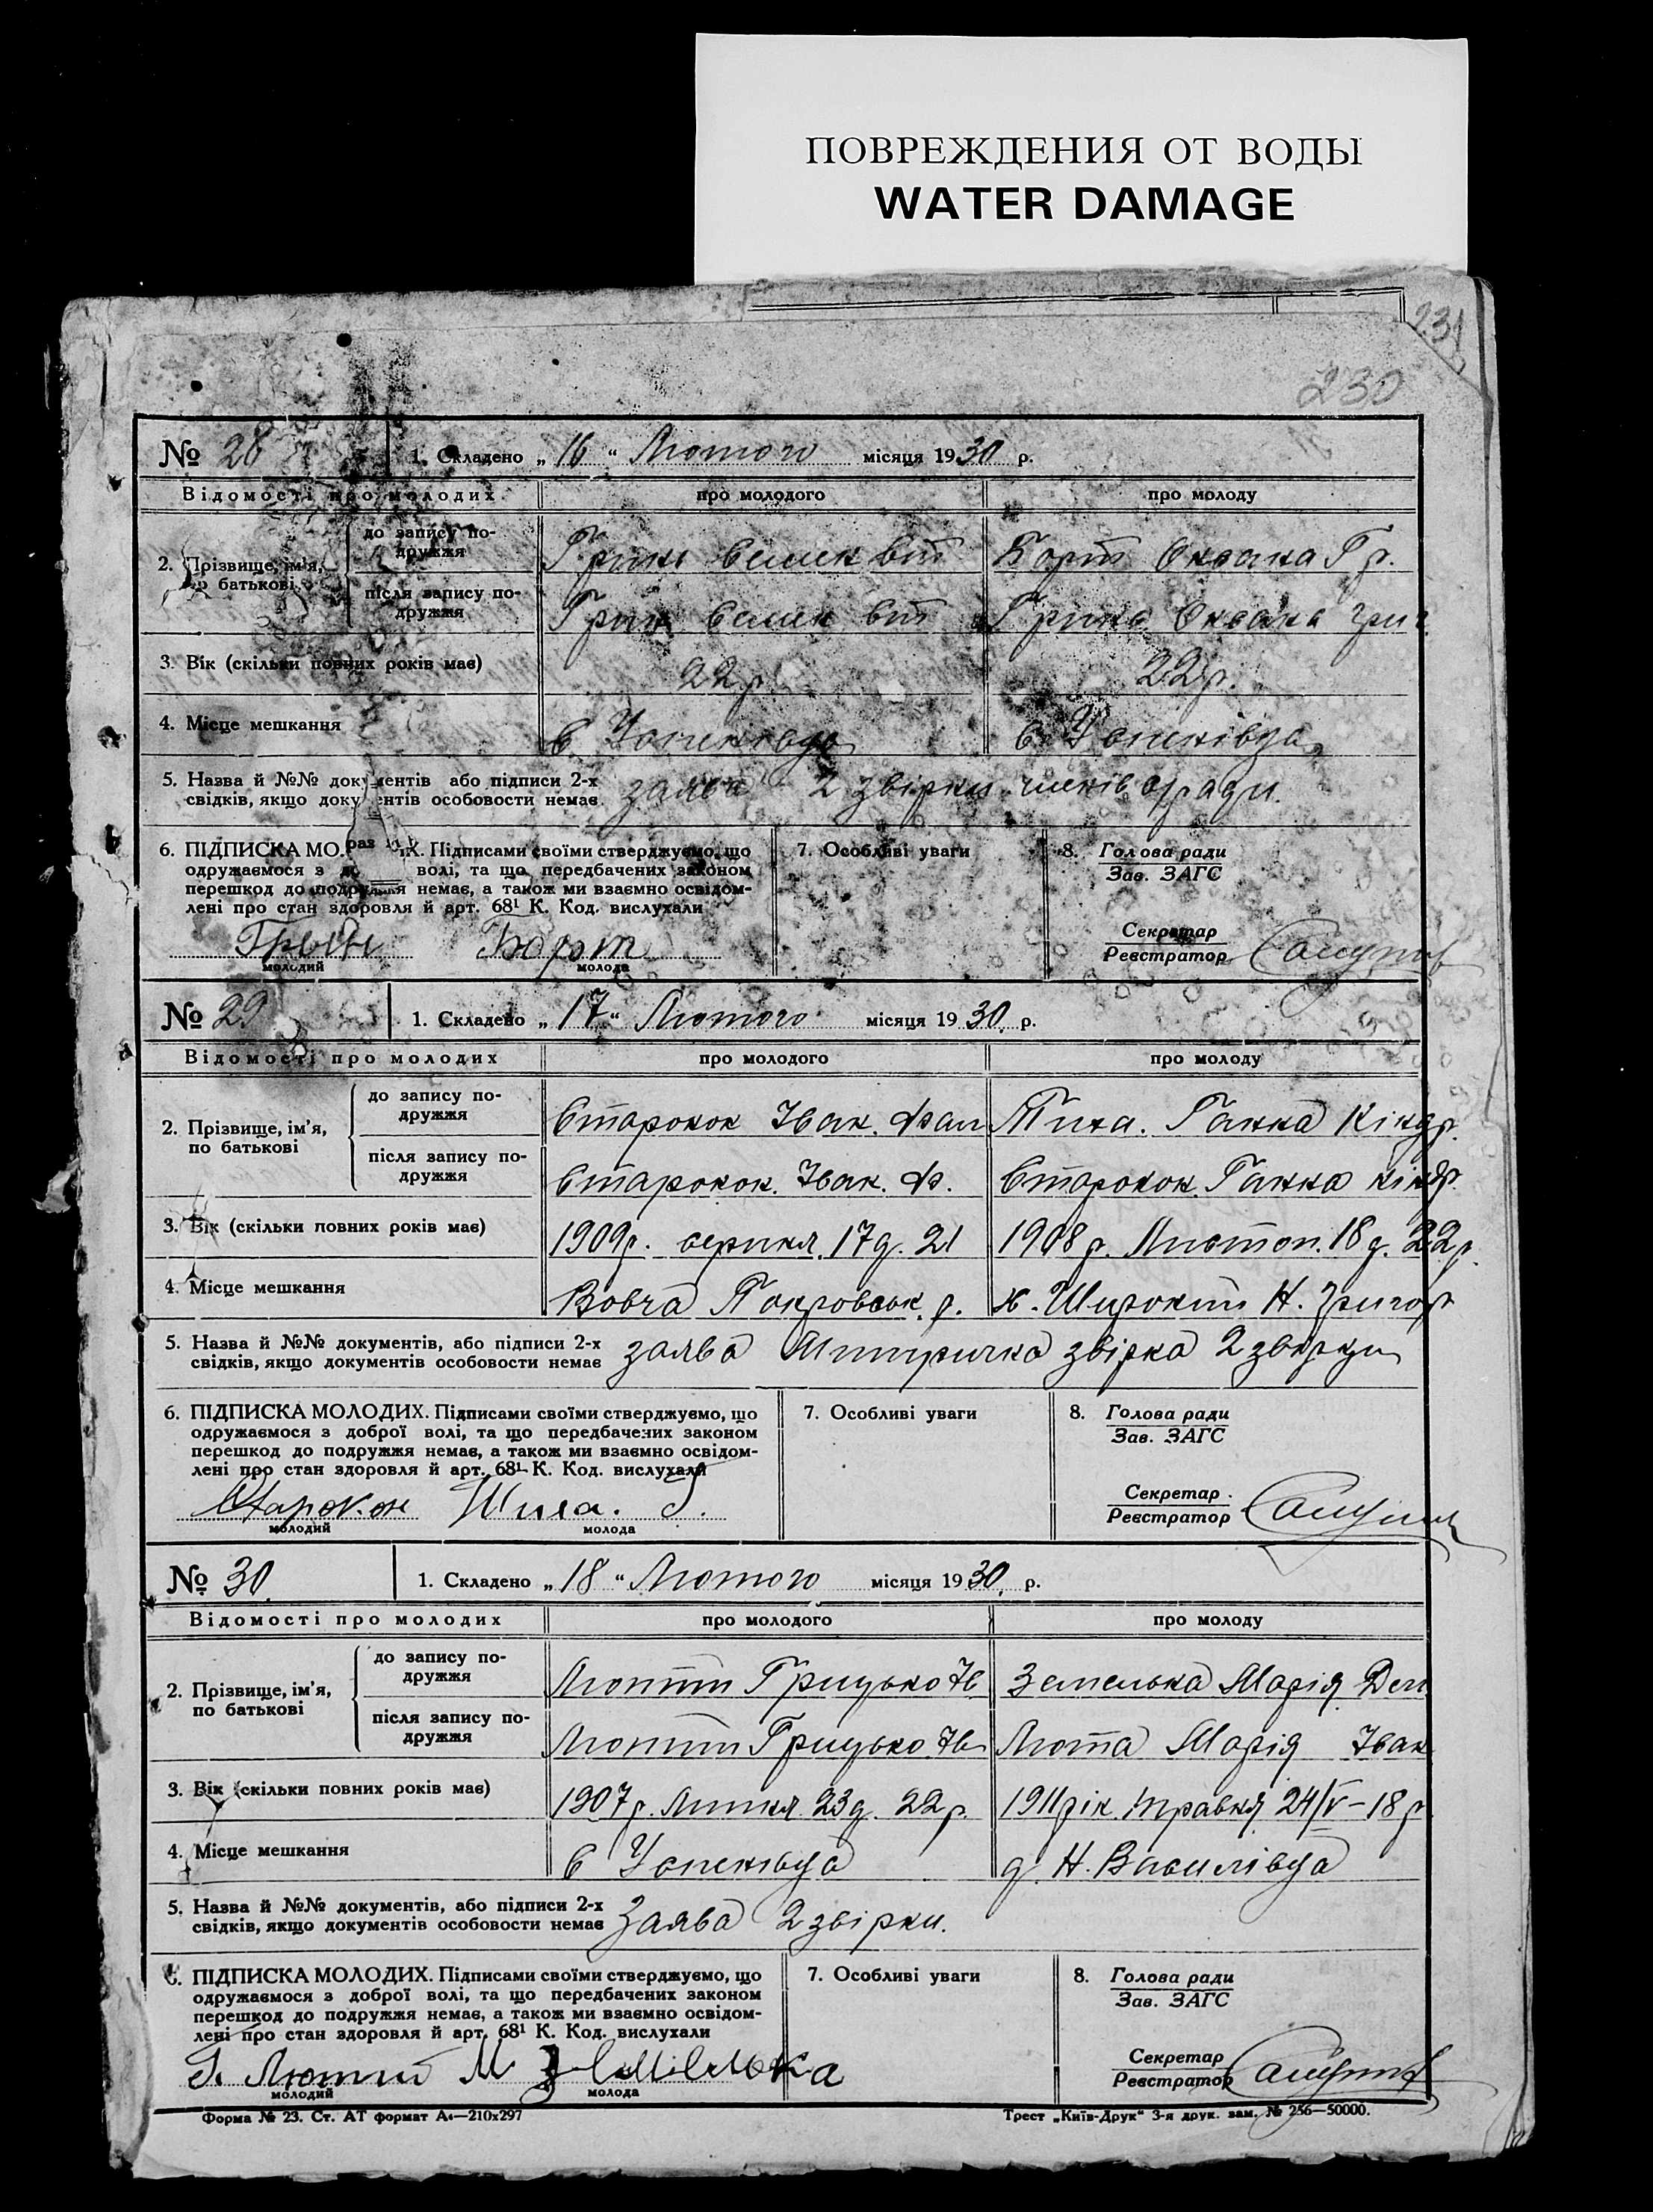 ПОВРЕЖДЕНИЯ ОТ ВОДЫ
WATER DAMAGE
231
230
№ 28 1. Складено „ 16 “ Лютого місяця 1930 р.
Відомості про молодих про молодого про молоду
2. Прізвище, ім'я, по батькові
до запису подружжя Гринь Семен Борт Оксана Гр.
після запису подружжя Гринь Семен Гринь Оксана Григ.
3. Вік (скільки повних років має) 22 р. 22 р.
4. Місце мешкання с Успенівца с. Успенівца
5. Назва й №№ документів або підписи 2-х
свідків, якщо документів особовости немає заява 2 звірки членів с/ради.
6. ПІДПИСКА МО раз ИХ. Підписами своїми стверджуємо, що 7. Особливі уваги 8. Голова ради
одружаємося з волі, та що передбачених законом Зав. ЗАГС
перешкод до подружжя немає, а також ми взаємно освідом-
лені про стан здоровля й арт. 68¹ К. Код. вислухали
Секретар
Борт Реєстратор
молодий молода
№ 29 1. Складено „ 17 “ Лютого місяця 1930. р.
Відомості про молодих про молодого про молоду
2. Прізвище, ім'я, по батькові
до запису подружжя Старокон Іван. Тиха. Ганна Кіндр.
після запису подружжя Старокон. Іван. Ф. Старокон. Ганна Кіндр.
3. Вік (скільки повних років має) 1909р. серпня. 17д. 21 1908 р. Листоп. 18 д. 22 р.
4. Місце мешкання Вовча Покровськ. р. х. Широкий Н. Григор
5. Назва й №№ документів, або підписи 2-х
свідків, якщо документів особовости немає заява звірка 2 звірки
6. ПІДПИСКА МОЛОДИХ. Підписами своїми стверджуємо, що 7. Особливі уваги 8. Голова ради
одружаємося з доброї волі, та що передбачених законом Зав. ЗАГС
перешкод до подружжя немає, а також ми взаємно освідом-
лені про стан здоровля й арт. 68¹ К. Код. вислухали
Секретар
Старокон Реєстратор
молодий молода
№ 30. 1. Складено „ 18 “ Лютого місяця 1930. р.
Відомості про молодих про молодого про молоду
2. Прізвище, ім'я, по батькові
до запису подружжя Лютий Грицько Ів Земелька Марія Дем
після запису подружжя Лютий Грицько Ів Люта Марія Іван
3. Вік (скільки повних років має) 1907р. Липня 23д. 22 р. 1911 рік. травня 24/V – 18 р
4. Місце мешкання с Успенівца д. Н. Василівца
5. Назва й №№ документів, або підписи 2-х
свідків, якщо документів особовости немає Заява 2 звірки.
6. ПІДПИСКА МОЛОДИХ. Підписами своїми стверджуємо, що 7. Особливі уваги 8. Голова ради
одружаємося з доброї волі, та що передбачених законом Зав. ЗАГС
перешкод до подружжя немає, а також ми взаємно освідом-
лені про стан здоровля й арт. 68¹ К. Код. вислухали
Секретар
Г. Лютий М Земелька Реєстратор
молодий молода
Форма № 23. Ст. АТ формат А₄—210x297 Трест „Київ-Друк“ 3-я друк. зам. № 256—50000.